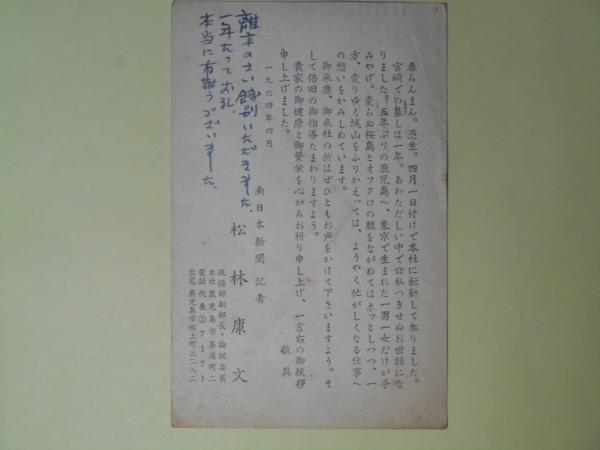 春らんまん。
四月一日付けで本社に転勤して参りました。
宮崎での暮しは一年。あわただしい中で公私つきせぬお世話にな
りました。五年ぶりの鹿児島へ、東京で生まれた一男一女だけが手
みやげ。変らぬ桜島とオフクロの顔をながめてはホッとしつつ、一
方、変りゆく城山をふりかえっては、ようやく忙がしくなる仕事へ
の想いをかみしめています。
御来鹿、御来社の折はぜひともお声をかけて下さいますよう。そ
して倍旧の御指導たまわりますよう。
貴家の御健康と御繁栄を心からお祈り申し上げ、一言右の御挨拶
申し上げました。
敬具
一九六四年四月
南日本新聞 記者
松林康文
政経部副部長・論説委員
本社 鹿児島市易居町二
電話代表②7171
自宅 鹿児島市田上町五二八二
離辛のさい餞別いただきました。
一年たってお礼
本当に有難うございました。